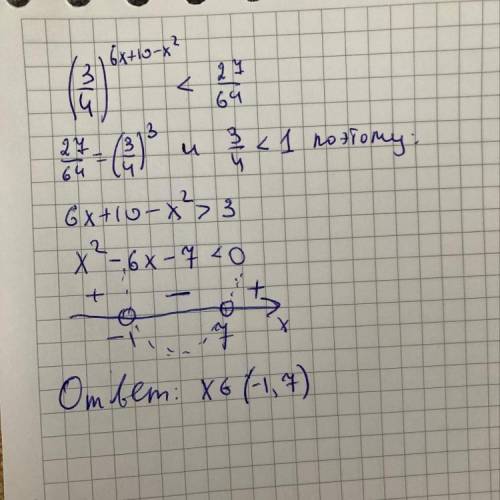 (3/4)^(6x+10-x²) < 27/64
27/64 = (3/4)³ и 3/4 < 1 поэтому:
6x+10-x² > 3
x² - 6x - 7 < 0
+ - +
-1 7 x
Ответ: x∈(-1,7)